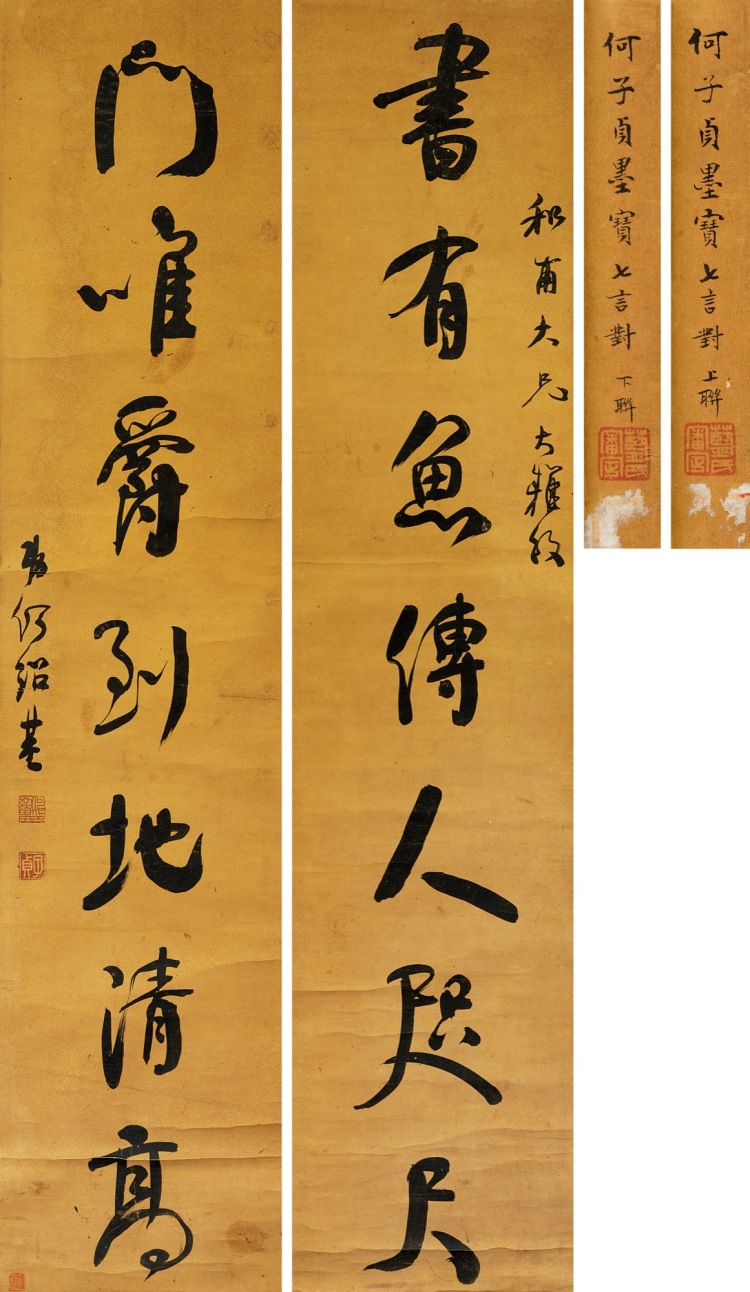 何子貞墨寶七言對 上聯
何子貞墨寶七言對 下聯
和甫大兄大雅
書有魚傳人咫尺
門唯爵到地清高
弟何紹基
子貞